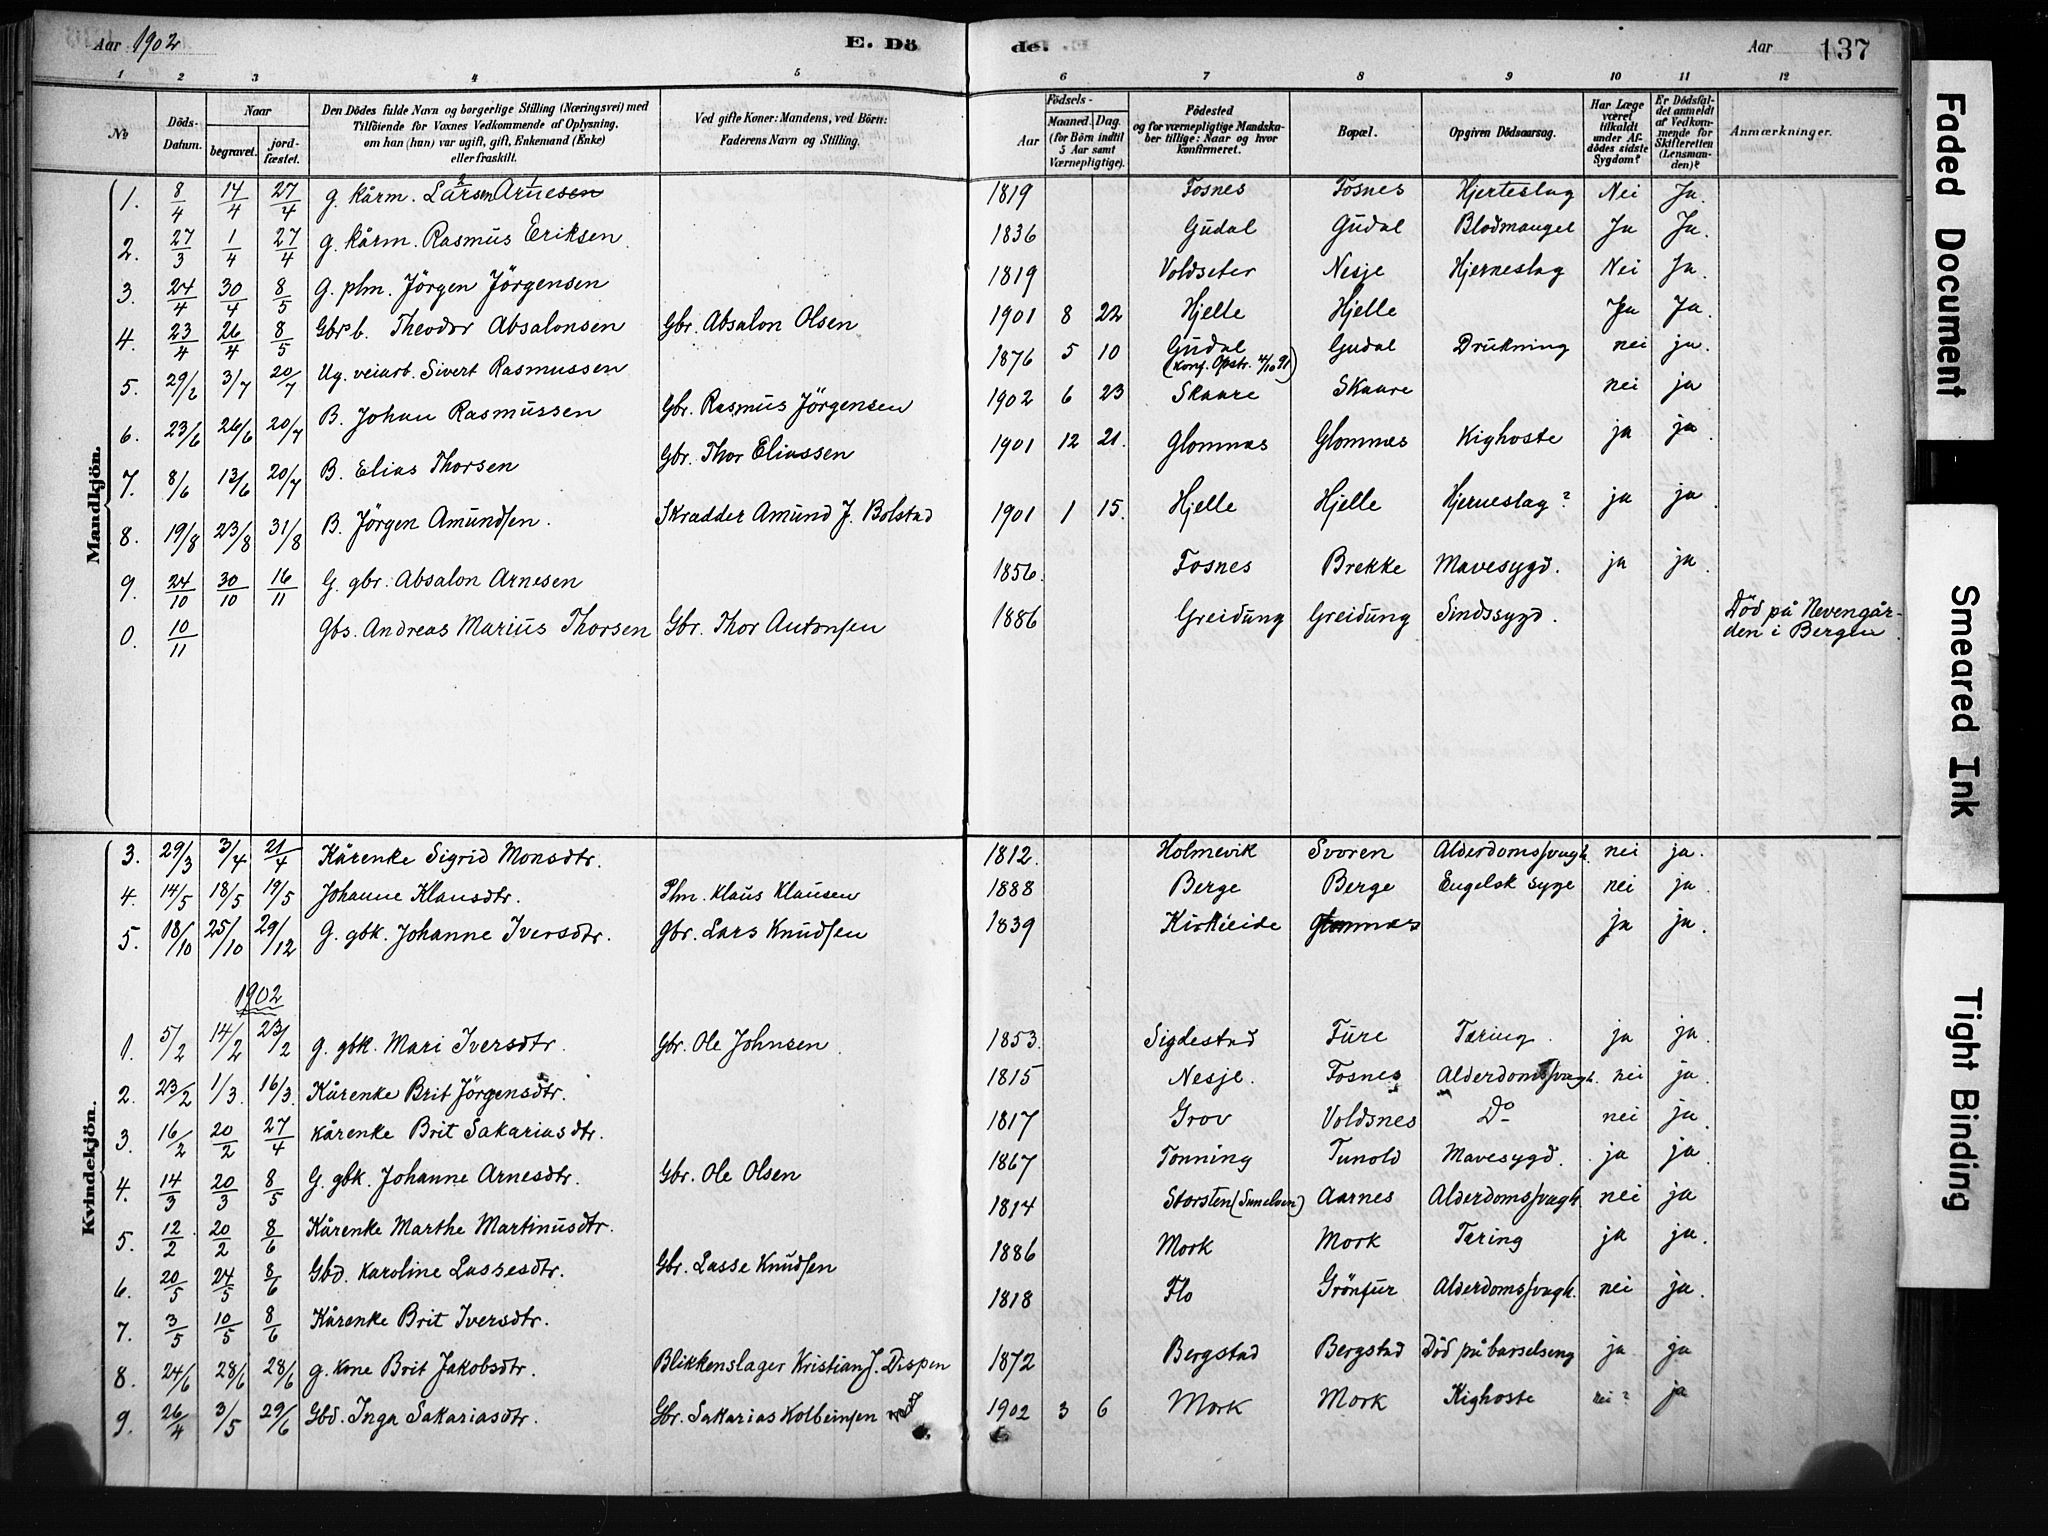 Aar 1902 E. Dö de. Aar 137
1 2 3 4 5 6 7 8 9 10 11 12
No Döds-Datum. Naar begravet. jordfæstet. Den Dödes fulde Navn og borgerlige Stilling (Næringsvei) med Tilföiende for Voxnes Vedkommende af Oplysning, om han (hun) var ugift, gift, Enkemand (Enke) eller fraskilt. Ved gifte Koner: Mandens, ved Börn: Faderens Navn og Stilling. Födsels- Aar Maaned. Dag. (for Börn indtil 5 Aar samt Værnepligtige). Födested og for værnepligtige Mandskaber tillige: Naar og hvor konfirmeret. Bopæl. Opgiven Dödsaarsag. Har Læge været tilkaldt under Afdödes sidste Sygdom? Er Dödsfaldet anmeldt af Vedkommende for Skifteretten (Lensmanden)? Anmærkninger.
Mandkjön.
1. 8/4 14/4 27/4 g. kårm. Lars Arnesen 1819 Fosnes Fosnes Hjerteslag Nei Ja.
2. 27/3 1/4 27/4 g. kårm. Rasmus Eriksen 1836 Gudal Gudal Blodmangel Ja Ja.
3. 24/4 30/4 8/5 G. plm. Jörgen Jörgensen 1819 Voldseter Nesje Hjerneslag Nei Ja.
4. 23/4 26/4 8/5 Gbrs b. Theodor Absalonsen Gbr. Absalon Olsen 1901 8 22 Hjelle Hjelle Ja Ja.
5. 29/2 3/7 20/7 Ug. veiarb. Sivert Rasmussen 1876 5 10 Gudal (konf. Opstr. 4/10 91) Gudal Drukning nei ja.
6. 23/6 26/6 20/7 B. Johan Rasmussen Gbr. Rasmus Jörgensen 1902 6 23 Skaare Skaare nei ja
7. 8/6 13/6 20/7 B. Elias Thorsen Gbr. Thor Eliassen 1901 12 21. Glomnæs Glomnes Kighoste ja ja.
8. 19/8 23/8 31/8 B. Jörgen Amundsen. Skrædder Amund J. Bolstad 1901 1 15. Hjelle Hjelle Hjerneslag? ja ja.
9. 24/10 30/10 16/11 G. gbr. Absalon Arnesen 1856. Fosnes Brekke Mavesygd. ja ja.
0. 10/11 Gbs. Andreas Marius Thorsen Gbr. Thor Antonsen 1886 Greidung Greidung Sindssygd. Död på Nevengår-
den i Bergen.
Kvindekjön.
3. 29/3 3/4 21/4 Kårenke Sigrid Monsdtr. 1812. Holmevik Svoren Alderdomssvagh. nei ja.
4. 14/5 18/5 19/5 Johanne Klausdtr. Plm. Klaus Klausen 1888 Berge Berge Engelsk syge nei ja.
5. 18/10 25/10 29/12 G. gbk. Johanne Iversdtr. Gbr. Lars Knudsen 1839 Kirkeeide Glomnæs ja ja.
1902
1. 5/2 14/2 23/2 g. gbk. Mari Iversdtr. Gbr. Ole Johnsen. 1853. Sigdestad Fure Tæring. ja ja.
2. 23/2 1/3. 16/3. Kårenke Brit Jörgensdtr. 1815 Nesje. Fosnes Alderdomssvagh. nei ja.
3. 16/2 20/2 27/4 Kårenke Brit Sakariasdtr. 1817 Grov Voldsnes Do nei ja.
4. 14/3 20/3 8/5 G. gbk. Johanne Arnesdtr. Gbr. Ole Olsen 1867 Tonning Tunold Mavesygd. ja ja.
5. 12/2 20/2 8/6 Kårenke Marthe Martinusdtr. 1814 Storsten (Sunelven) Aarnes Alderdomssvagh. nei ja
6. 20/5 24/5 8/6 Gbd. Karoline Lassesdtr. Gbr. Lasse Knudsen 1886 Mork Mork Tæring ja ja.
7. 3/5 10/5 8/6 Kårenke Brit Iversdtr. 1818 Flo Grönfur Alderdomssvagh. nei ja.
8. 24/6 28/6 28/6 g. kone Brit Jakobsdtr. Blikkenslager Kristian J. Dispen 1872 Bergstad Bergstad Död på barselseng ja ja
9. 26/4 3/5 29/6 Gbd. Inga Sakariasdtr. Gbr. Sakarias Kolbeinsen 1902 3 6 Mork Mork Kighoste nei? ja
Faded Document
Smeared Ink
Tight Binding